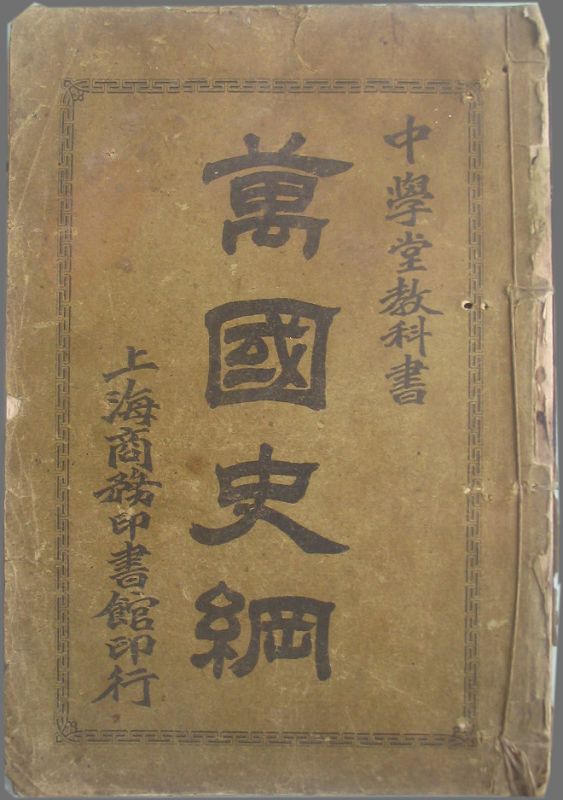 中學堂教科書
萬國史綱
上海商務印書館印行